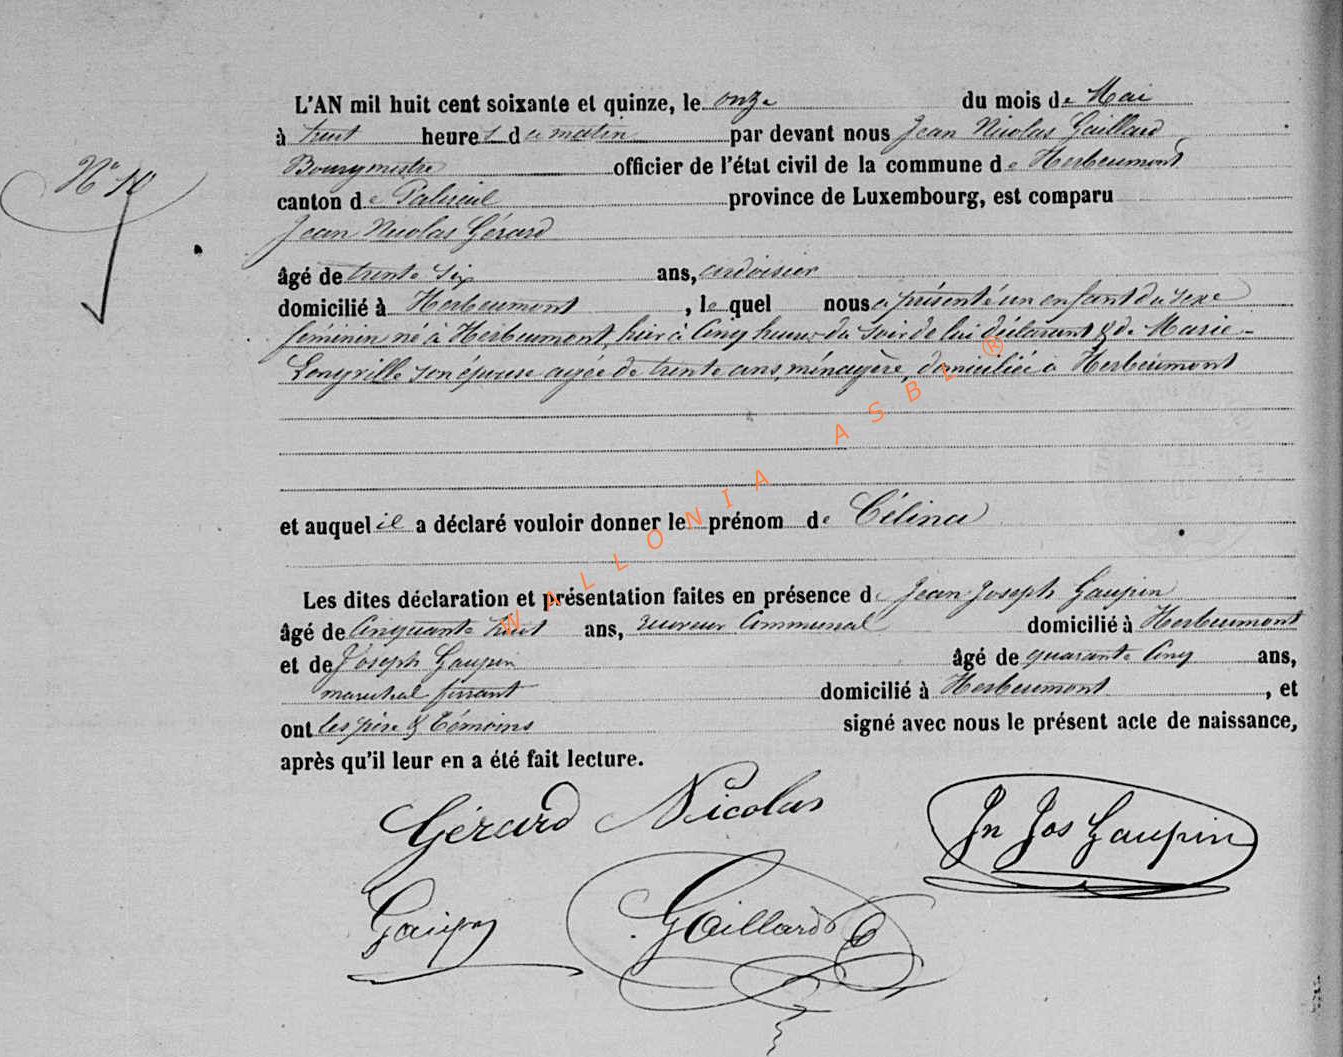 L'AN mil huit cent soixante et quinze, le onze du mois de Mai
à huit heures du matin par devant nous Jean Nicolas Gaillard
N° 10
Bourgmestre officier de l'état civil de la commune de Herbeumont
canton de Paliseul province de Luxembourg, est comparu
Jean Nicolas Gérard
âgé de trente six ans, ardoisier
domicilié à Herbeumont, lequel nous a présenté un enfant du sexe
féminin né à Herbeumont, hier à cinq heures du soir de lui déclarant & de Marie
son épouse agée de trente ans, ménagère, domiciliée à Herbeumont
et auquel il a déclaré vouloir donner le prénom de Célina
Les dites déclaration et présentation faites en présence de Jean Joseph Gaupin
âgé de Cinquante huit ans, receveur Communal domicilié à Herbeumont
et de Joseph Gaupin âgé de quarante cinq ans,
maréchal ferrant domicilié à Herbeumont, et
ont les père & témoins signé avec nous le présent acte de naissance,
après qu'il leur en a été fait lecture.
Gérard Nicolas
Jn Jos Gaupin
Gaupin
Gaillard
WALLONIA ASBL ®